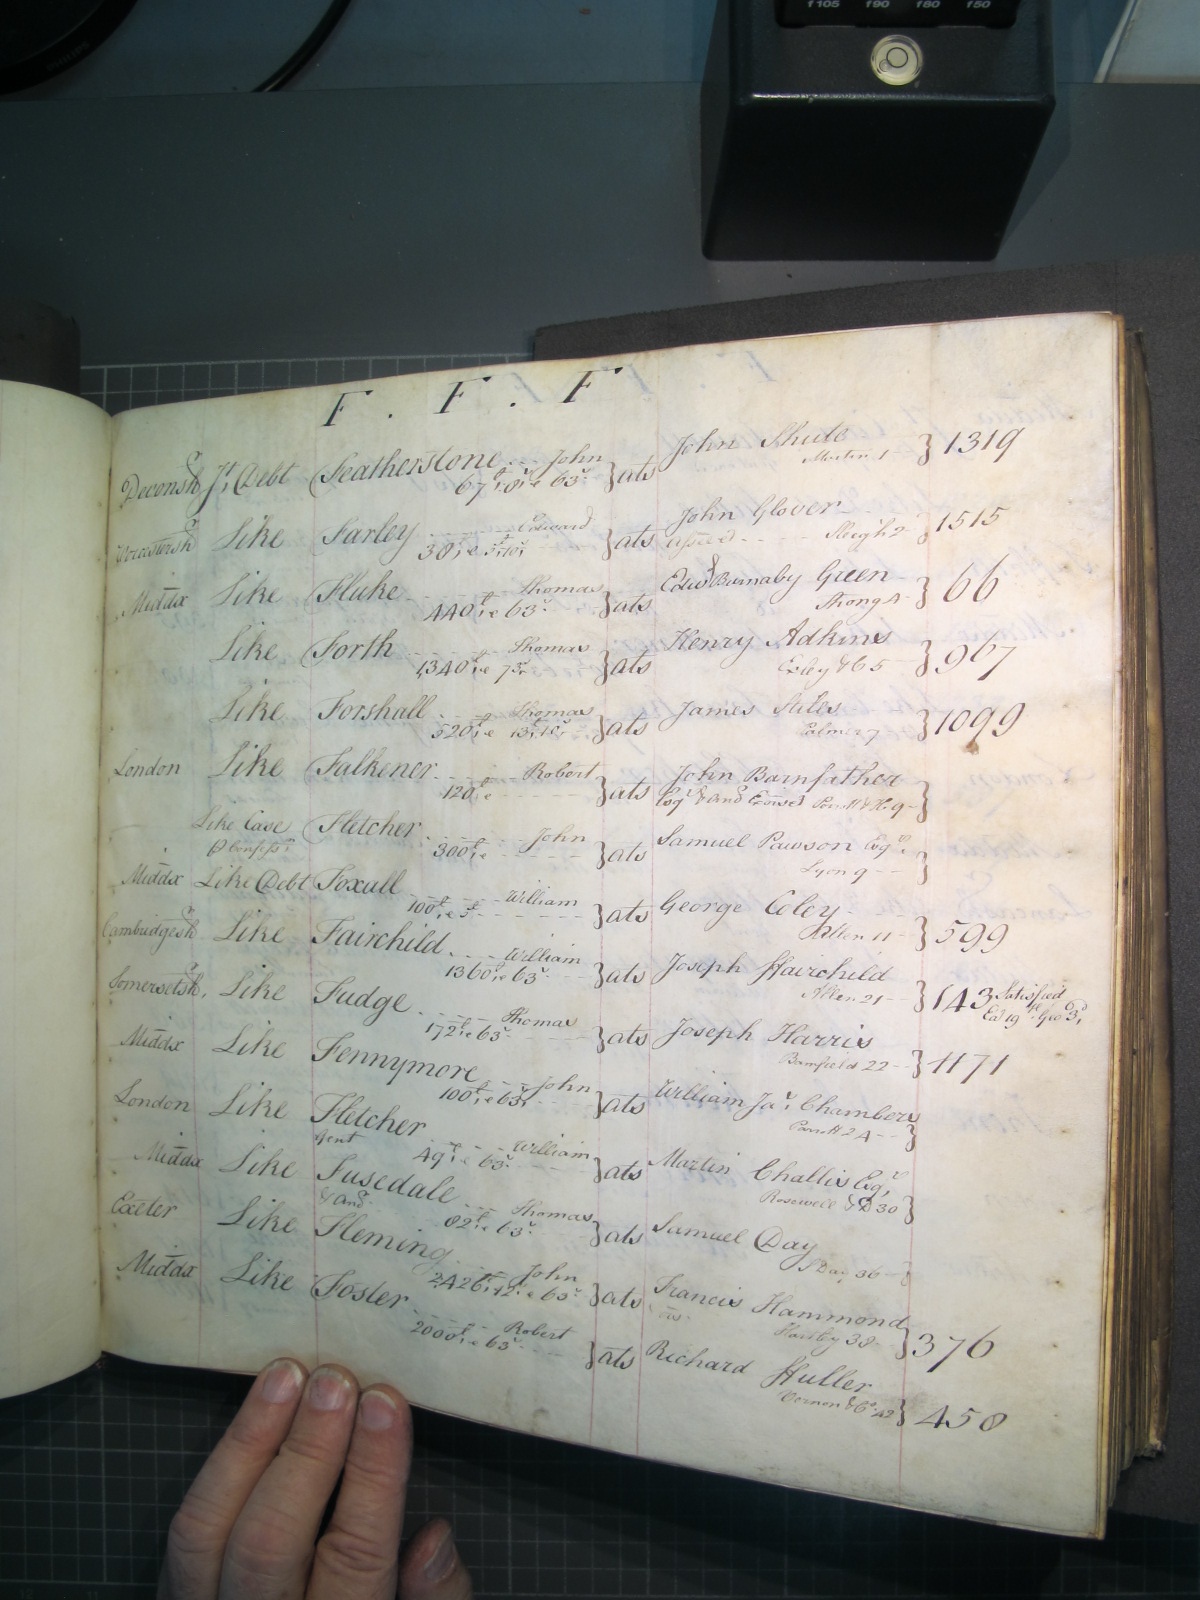 f105 f90 f80 f50
F . F . F
Devonsh Jt. Debt Featherstone John } ats John Shute } 1319
67£.8s. & 63s Martin 1
Worcestersh Like Farley Edward } ats John Glover } 1515
38£. & Sleigh 2
Middx Like Fluke Thomas } ats Edwd Barnaby Green } 66
440£. & 63s Strong 4
Like Forth Thomas } ats Henry Adkins } 967
1340£. & 73s Exley & Co 5
Like Forshall Thomas } ats James Stiles } 1099
520£. & Palmer 7
London Like Falkener Robert } ats John Barnfather }
120£. & Esqr. and 9
Like Case Fletcher John } ats Samuel Pawson Esqr. }
p Confessn 300£. & Lyon 9
Middx Like Debt Foxall William } ats George Coley } 599
100£. & Allen 11
Cambridgesh Like Fairchild William } ats Joseph Hairchild } 143 Satisfied
1360£. & 63s Allen 21 Ea. 19 Geo 3d.
Somersetsh. Like Fudge Thomas } ats Joseph Harris } 1171
172£. & 63s Bamfield 22
Middx Like Fennymore John } ats William Jas. Chambers }
100£. & 63s Parrott 24
London Like Fletcher William } ats Martin Challis Esqr. }
Gent 49£. & 63s Rosewell & D 30
Middx Like Fusedale Thomas } ats Samuel Day }
and 82£. & 63s Day 36
Exeter Like Fleming John } ats Francis Hammond } 376
2426£. 12s. & 63s Hartley 38
Middx Like Foster Robert } ats Richard Fuller } 458
2000£. & 63s Vernon & Co. 42